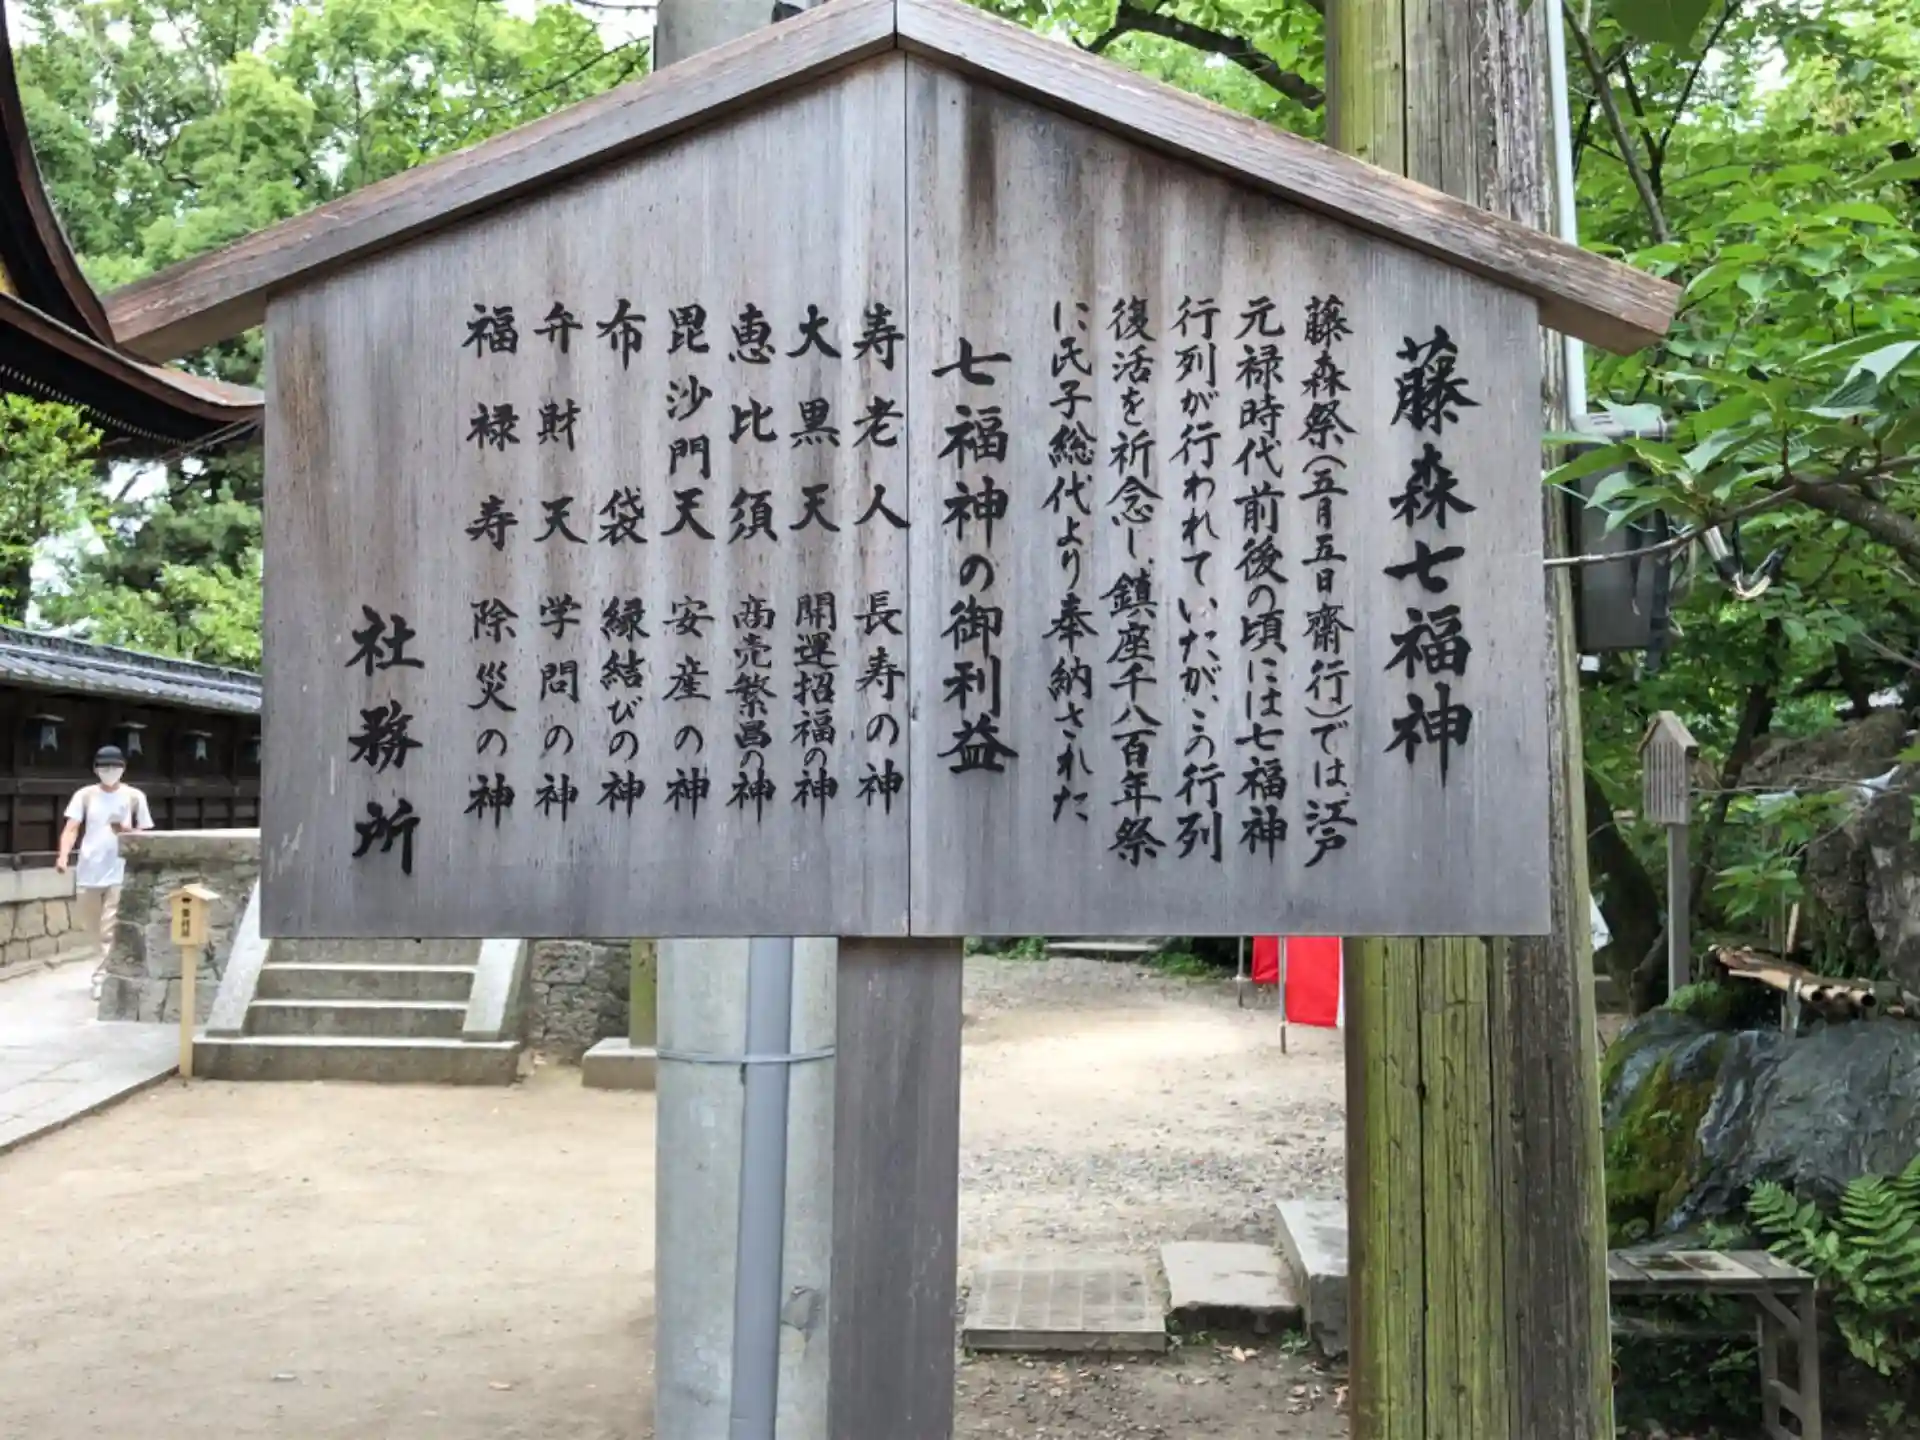 藤森七福神
藤森祭(五月五日齋行)では、江戸
元禄時代前後の頃には七福神
行列が行われていたが、この行列
復活を祈念し、鎮座千八百年祭
に氏子総代より奉納された
七福神の御利益
寿老人 長寿の神
大黒天 開運招福の神
恵比須 商売繁昌の神
毘沙門天 安産の神
布袋 縁結びの神
弁財天 学問の神
福禄寿 除災の神
社務所